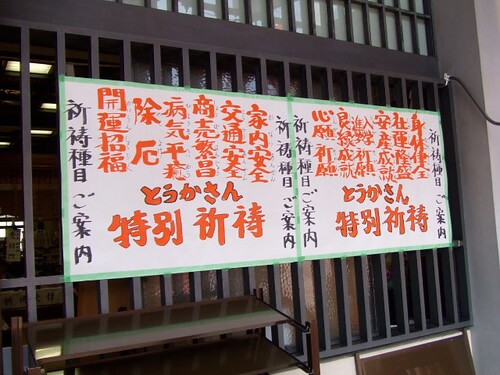 祈祷種目ご案内
身体健全
社運隆盛
安産成就
入学祈願
良縁成就
心願祈願
祈祷種目ご案内
とうかさん
特別祈祷
祈祷種目ご案内
家内安全
交通安全
商売繁昌
病気平癒
除厄
開運招福
祈祷種目ご案内
とうかさん
特別祈祷